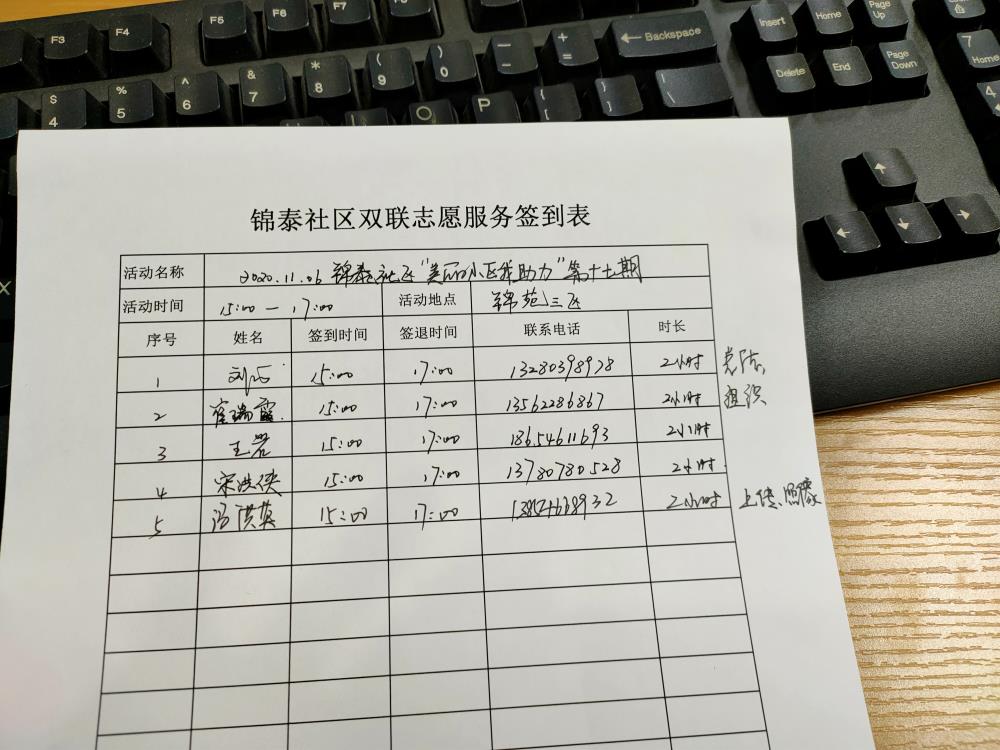 F3 F4 F5 F6 F7 F8
$ 4 % 5 ^ 6 & 7 * 8 ( 9 ) 0 _ - + = ← Backspace
O P { [ } ] | \
Insert Home Page Up
Delete End Page Down
7 Home
4
锦泰社区双联志愿服务签到表
活动名称 2020.11.06 锦泰社区"美丽小区我助力"第十七期
活动时间 15:00 — 17:00 活动地点 锦苑小三区
序号 姓名 签到时间 签退时间 联系电话 时长
1 15:00 17:00 13280398978 2小时
2 崔瑞霞 15:00 17:00 13562286867 2小时 组织
3 王岩 15:00 17:00 18654611693 2小时
4 宋洪侠 15:00 17:00 13780780528 2小时
5 冯洪英 15:00 17:00 13854668932 2小时 上传、照像